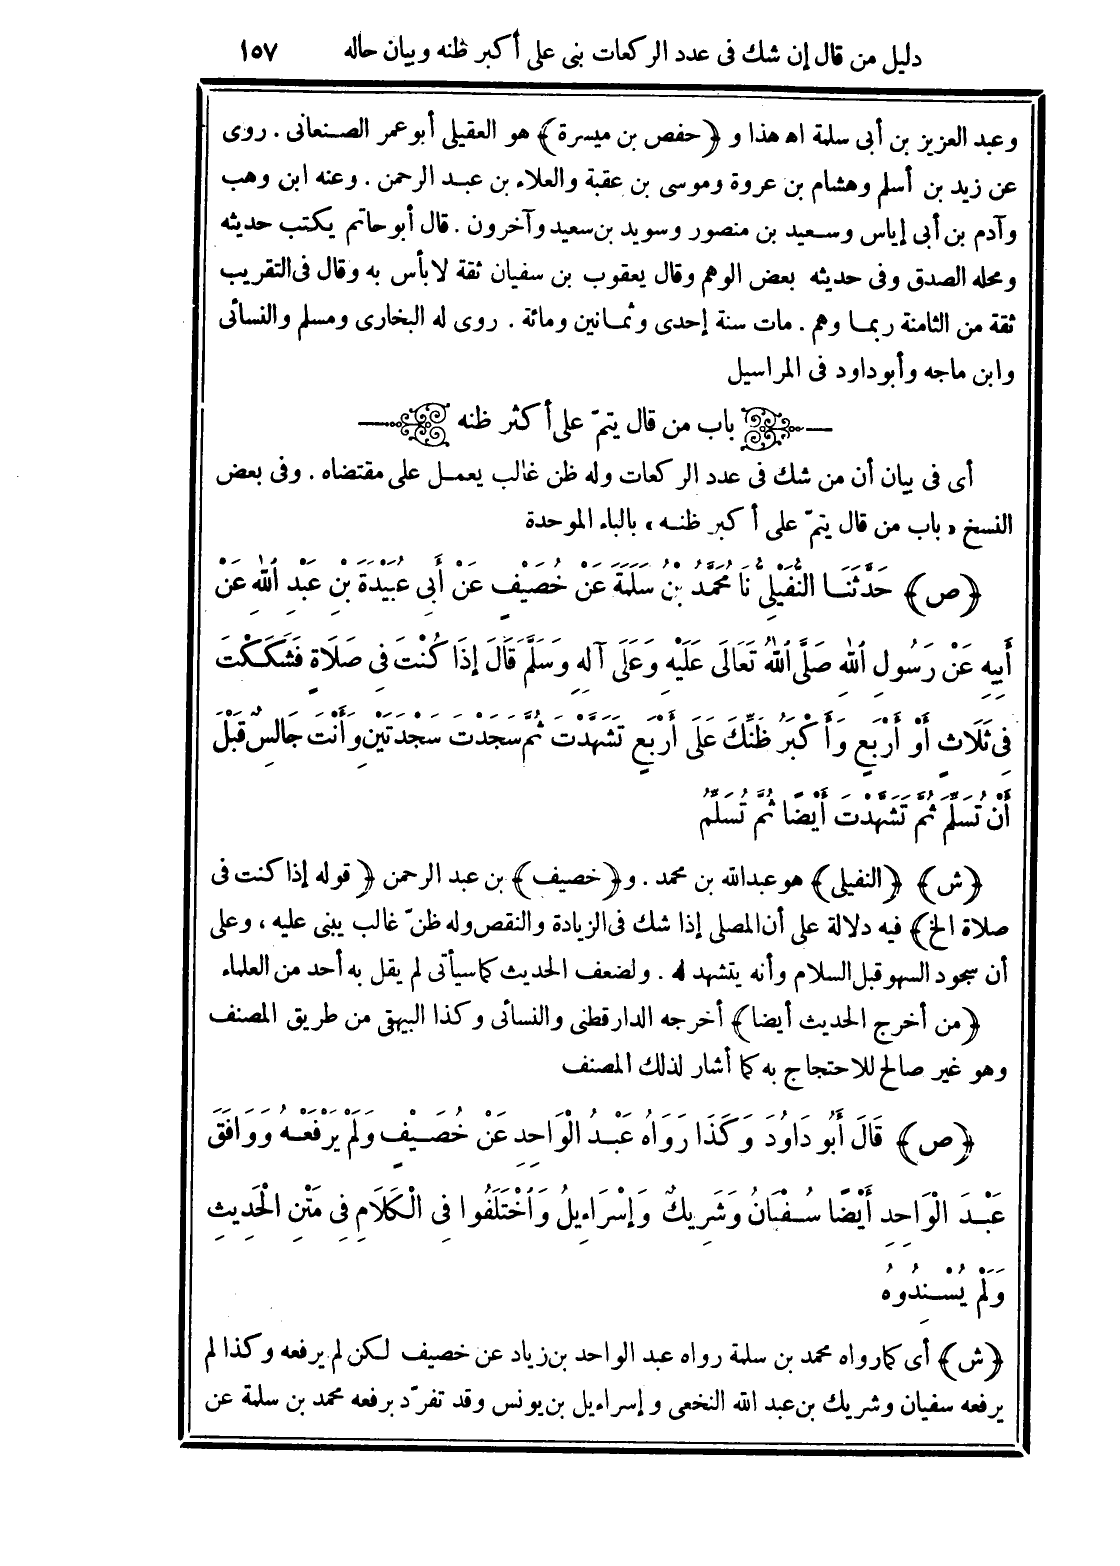 دليل من قال إن شك فى عدد الركعات بنى على أكبر ظنه وبيان حاله ١٥٧
وعبد العزيز بن أبى سلمة اه هذا و ﴿حفص بن ميسرة﴾ هو العقيلى أبو عمر الصنعانى . روى
عن زيد بن أسلم وهشام بن عروة وموسى بن عقبة والعلاء بن عبد الرحمن . وعنه ابن وهب
وآدم بن أبى إياس وسعيد بن منصور وسويد بن سعيد وآخرون . قال أبو حاتم يكتب حديثه
ومحله الصدق وفى حديثه بعض الوهم وقال يعقوب بن سفيان ثقة لا بأس به وقال فى التقريب
ثقة من الثامنة ربما وهم . مات سنة إحدى وثمانين ومائة . روى له البخارى ومسلم والنسائى
وابن ماجه وأبو داود فى المراسيل
باب من قال يتمّ على أكثر ظنه
أى فى بيان أن من شك فى عدد الركعات وله ظن غالب يعمل على مقتضاه . وفى بعض
النسخ «باب من قال يتمّ على أكبر ظنه» بالباء الموحدة
﴿ص﴾ حَدَّثَنَا النُّفَيْلِىُّ نَا مُحَمَّدُ بْنُ سَلَمَةَ عَنْ خُصَيْفٍ عَنْ أَبِى عُبَيْدَةَ بْنِ عَبْدِ اللهِ عَنْ
أَبِيهِ عَنْ رَسُولِ اللهِ صَلَّى اللهُ تَعَالَى عَلَيْهِ وَعَلَى آلِهِ وَسَلَّمَ قَالَ إِذَا كُنْتَ فِى صَلَاةٍ فَشَكَكْتَ
فِى ثَلَاثٍ أَوْ أَرْبَعٍ وَأَكْبَرُ ظَنِّكَ عَلَى أَرْبَعٍ تَشَهَّدْتَ ثُمَّ سَجَدْتَ سَجْدَتَيْنِ وَأَنْتَ جَالِسٌ قَبْلَ
أَنْ تُسَلِّمَ ثُمَّ تَشَهَّدْتَ أَيْضًا ثُمَّ تُسَلِّمُ
﴿ش﴾ ﴿النفيلى﴾ هو عبد الله بن محمد . و﴿خصيف﴾ بن عبد الرحمن ﴿قوله إذا كنت فى
صلاة الخ﴾ فيه دلالة على أن المصلى إذا شك فى الزيادة والنقص وله ظنّ غالب يبنى عليه ، وعلى
أن سجود السهو قبل السلام وأنه يتشهد له . ولضعف الحديث كما سيأتى لم يقل به أحد من العلماء
﴿من أخرج الحديث أيضا﴾ أخرجه الدارقطنى والنسائى وكذا البيهقى من طريق المصنف
وهو غير صالح للاحتجاج به كما أشار لذلك المصنف
﴿ص﴾ قَالَ أَبُو دَاوُدَ وَكَذَا رَوَاهُ عَبْدُ الْوَاحِدِ عَنْ خُصَيْفٍ وَلَمْ يَرْفَعْهُ وَوَافَقَ
عَبْدَ الْوَاحِدِ أَيْضًا سُفْيَانُ وَشَرِيكٌ وَإِسْرَاءِيلُ وَاخْتَلَفُوا فِى الْكَلَامِ فِى مَتْنِ الْحَدِيثِ
وَلَمْ يُسْنِدُوهُ
﴿ش﴾ أى كما رواه محمد بن سلمة رواه عبد الواحد بن زياد عن خصيف لكن لم يرفعه وكذا لم
يرفعه سفيان وشريك بن عبد الله النخعى وإسراءيل بن يونس وقد تفرّد برفعه محمد بن سلمة عن